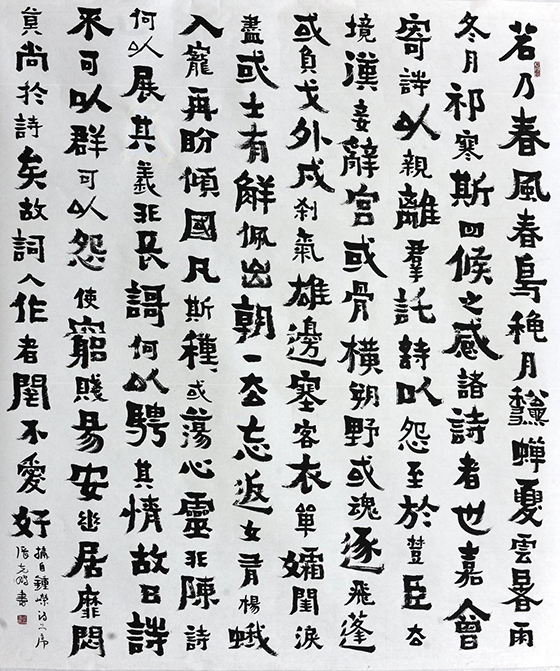 若乃春風春鳥穐月龝蟬夏雲暑雨
冬月祁寒斯四候之感諸詩者也嘉會
寄詩以親離羣託詩以怨至於楚臣去
境漢妾辭宮或骨橫朔野或魂逐飛蓬
或負戈外戍剎氣雄邊塞客衣單孀閨淚
盡或士有解佩出朝一去忘返女有楊蛾
入寵再盼傾國凡斯種或蕩心靈非陳詩
何以展其義非長謌何以騁其情故曰詩
可以群可以怨使窮賤易安幽居靡悶
莫尚於詩矣故詞人作者罔不愛好
摘自鍾嶸詩品序
書